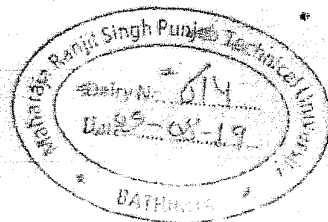 Maharaja Ranjit Singh Punjab Technical University
Dairy No. 614
Date
BATHINDA